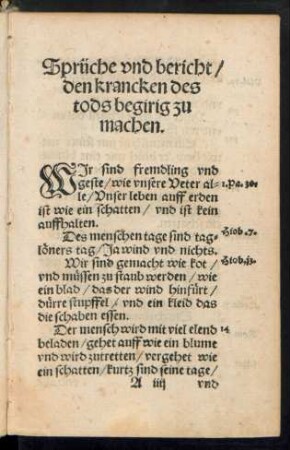 Sprüche vnd bericht /
den krancken des
tods begirig zu
machen.
WJr sind fremdling vnd
geste / wie vnsere Veter al- 1. Pa. 30.
le / Vnser leben auff erden
ist wie ein schatten / vnd ist kein
auffhalten.
Des menschen tage sind tag- Hiob. 7.
löners tag / Ja wind vnd nichts.
Wir sind gemacht wie kot / Hiob. 13.
vnd müssen zu staub werden / wie
ein blad / das der wind hinfürt /
dürre stupffel / vnd ein kleid das
die schaben essen.
Der mensch wird mit viel elend 14
beladen / gehet auff wie ein blume
vnd wird zutretten / vergehet wie
ein schatten / kurtz sind seine tage /
A iiij vnd